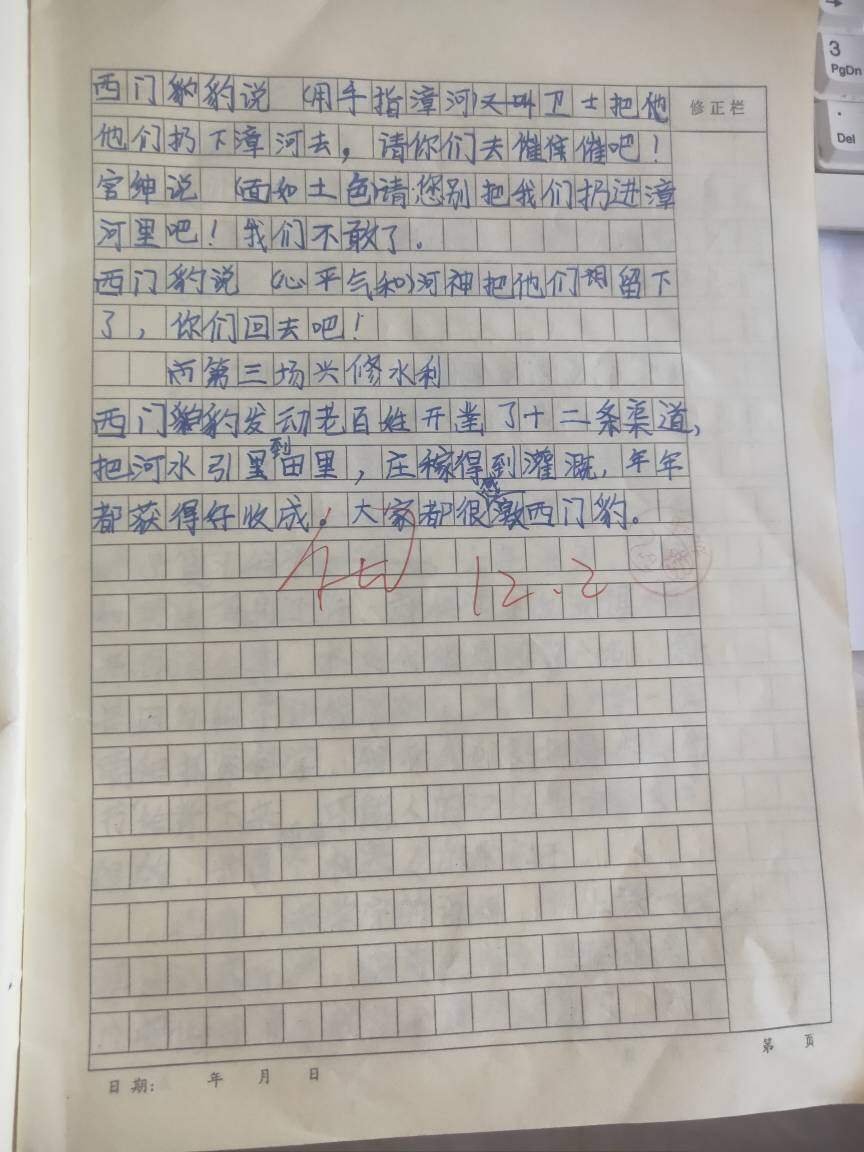 西门豹豹说 (用手指漳河)又叫卫士把他
他们扔下漳河去，请你们去催催催吧！
官绅说 (面如土色)请您别把我们扔进漳
河里吧！我们不敢了。
西门豹说 (心平气和)河神把他们留下
了，你们回去吧！
第三场兴修水利
西门豹豹发动老百姓开凿了十二条渠道，
把河水引到田里，庄稼得到灌溉，年年
都获得好收成。大家都很感激西门豹。
12.2
修正栏
第 页
日期： 年 月 日
3
PgDn
.
Del